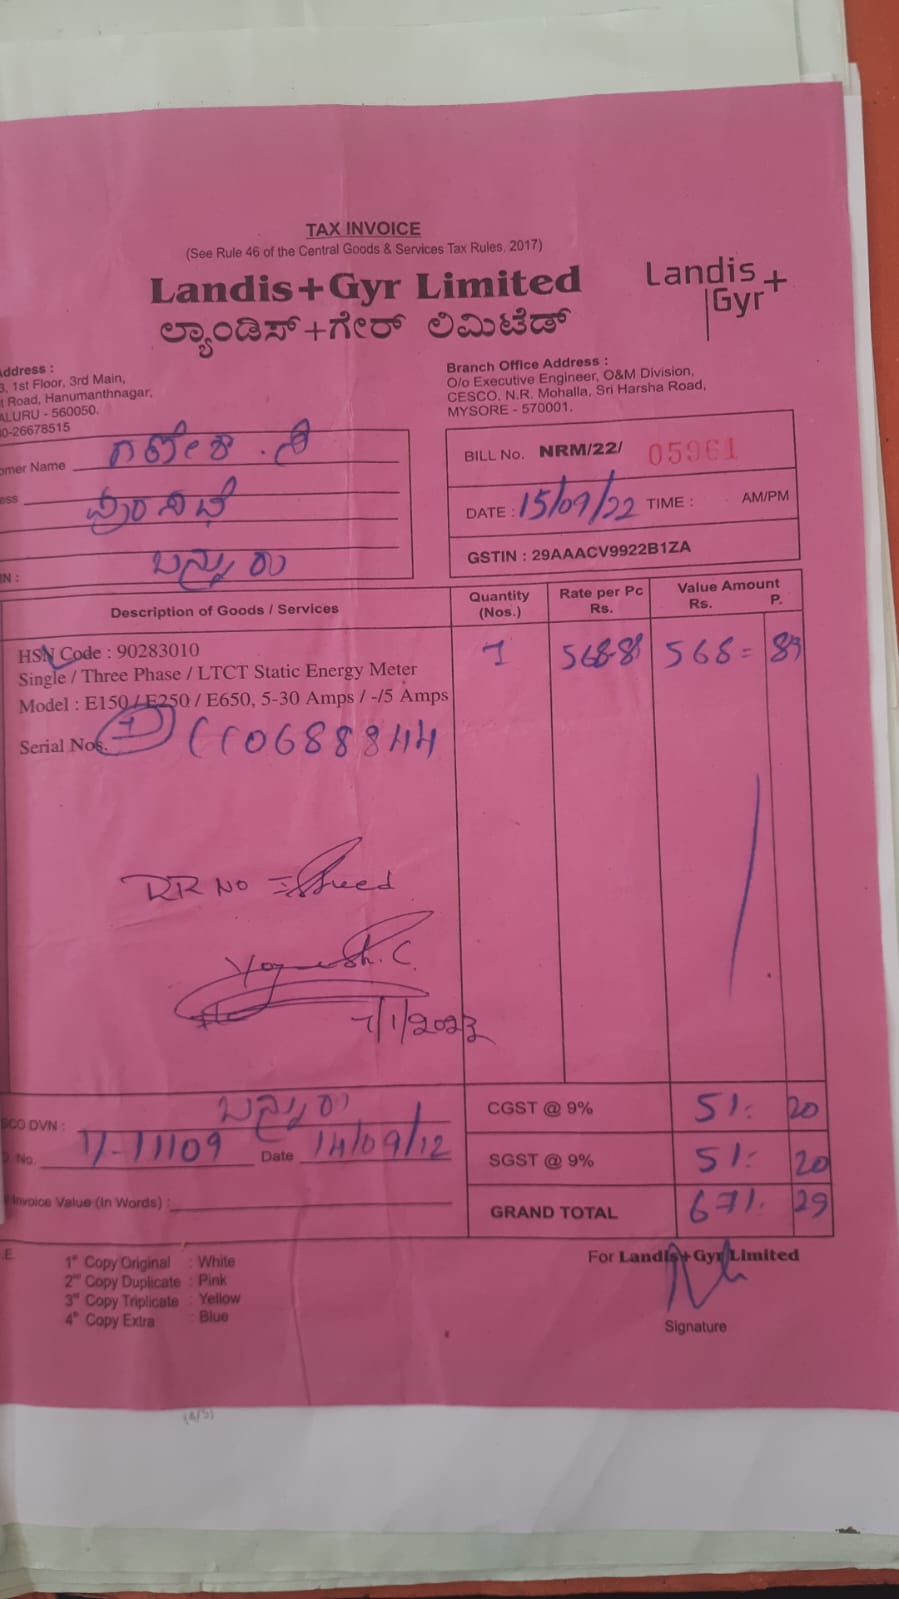 TAX INVOICE
(See Rule 46 of the Central Goods & Services Tax Rules, 2017)
Landis+Gyr Limited
ಲ್ಯಾಂಡಿಸ್+ಗೇರ್ ಲಿಮಿಟೆಡ್
Landis+
Gyr
Address :
3, 1st Floor, 3rd Main,
t Road, Hanumanthnagar,
ALURU - 560050.
0-26678515
Branch Office Address :
O/o Executive Engineer, O&M Division,
CESCO, N.R. Mohalla, Sri Harsha Road,
MYSORE - 570001.
omer Name
ess
ಬನ್ನೂರು
IN :
BILL No. NRM/22/ 05961
DATE : 15/09/22 TIME : AM/PM
GSTIN : 29AAACV9922B1ZA
Description of Goods / Services
Quantity (Nos.)
Rate per Pc Rs.
Value Amount Rs. P.
HSN Code : 90283010
Single / Three Phase / LTCT Static Energy Meter
Model : E150 / E250 / E650, 5-30 Amps / -/5 Amps
1 568-89 568= 89
Serial Nos.
RR NO
Yogesh.C.
7/1/2023
SCO DVN : ಬನ್ನೂರು
No. Date 14/09/12
Invoice Value (In Words) :
CGST @ 9% 51. 20
SGST @ 9% 51. 20
GRAND TOTAL 671. 29
.E.
1st Copy Original : White
2nd Copy Duplicate : Pink
3rd Copy Triplicate : Yellow
4th Copy Extra : Blue
For Landis+Gyr Limited
Signature